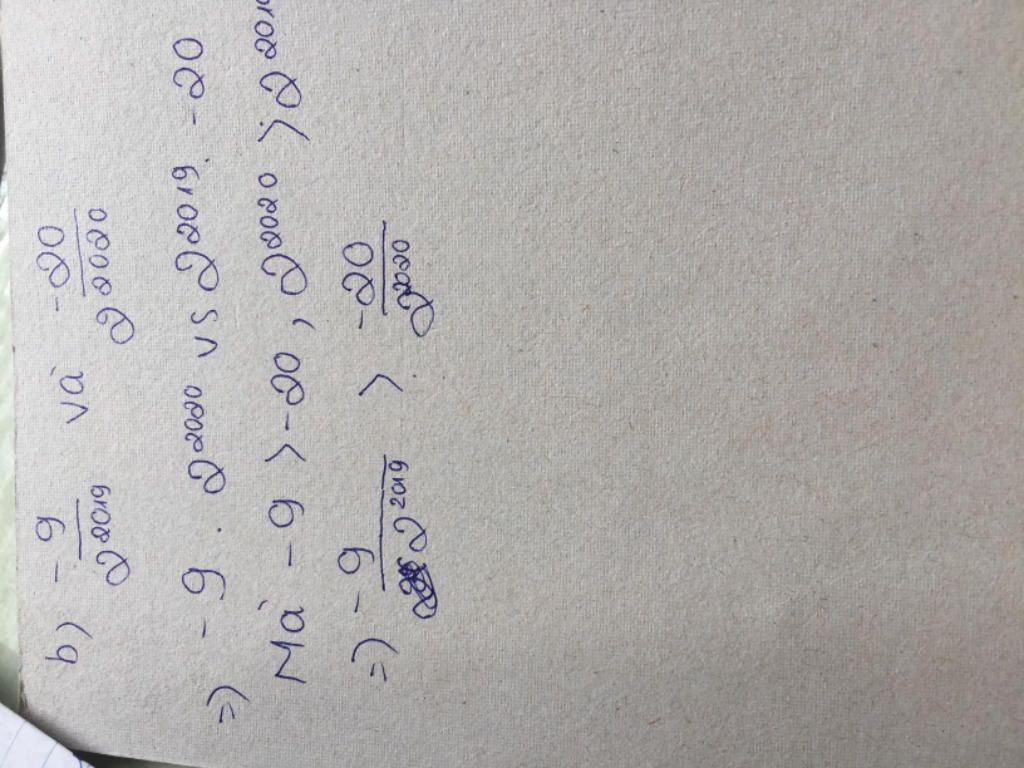 b) -9/2^2019 và -20/2^2020
=) -9 . 2^2020 vs 2^2019 . -20
Mà -9 > -20, 2^2020 > 2^2019
=) -9/2^2019 > -20/2^2020